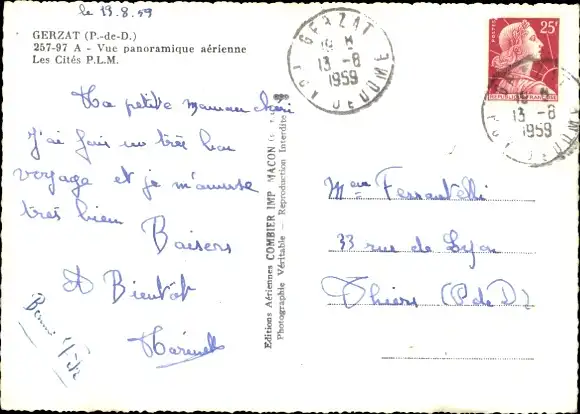 le 13.8.59
GERZAT (P.-de-D.)
257-97 A - Vue panoramique aérienne
Les Cités P.L.M.
Ma petite maman chéri
J'ai fait un très bon
voyage et je m'amuse
très bien
Baisers
A Bientôt
Bonne Fête
Editions Aériennes COMBIER IMP. MACON
Photographie Véritable - Reproduction Interdite
GERZAT
13 -8
1959
PUY DE DOME
POSTES
25F
REPUBLIQUE FRANÇAISE
13 -8
1959
PUY DE DOME
Mme
33 rue de Lyon
Thiers (P de D)